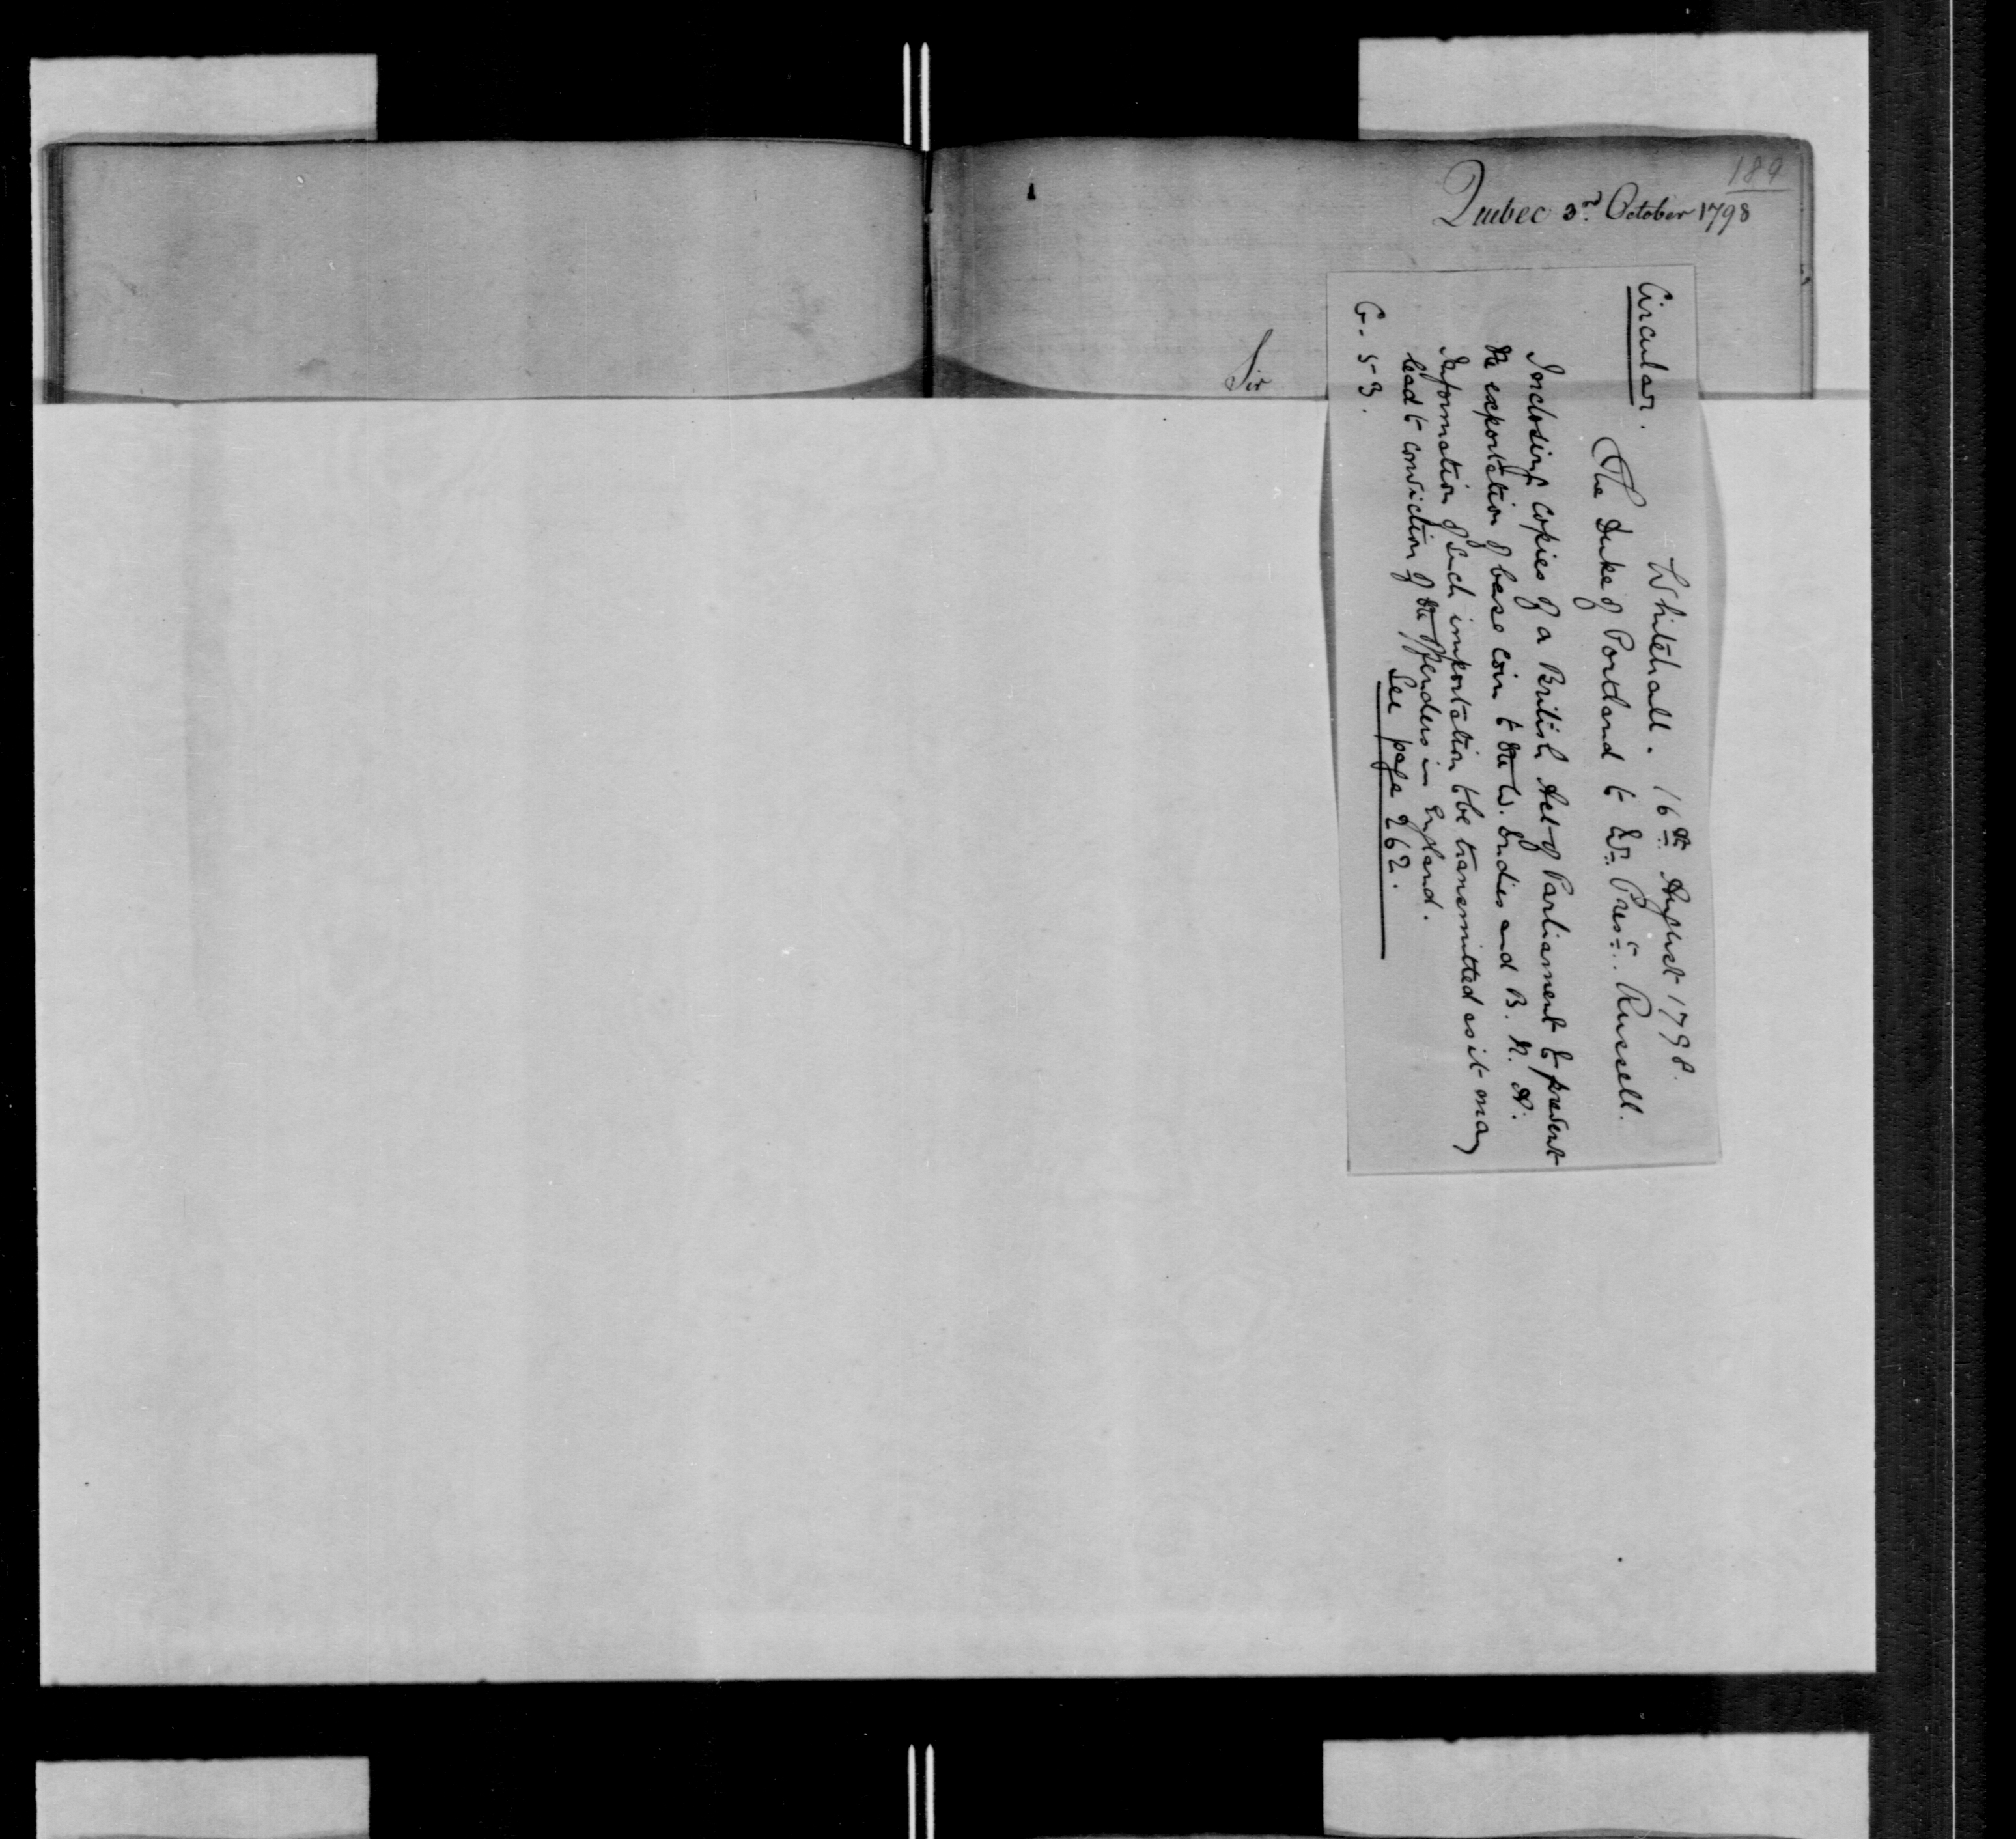 189
Quebec 3rd October 1798
Sir
Whitehall. 16th August 1798.
Circular.
The Duke of Portland to Mr. Prest. Russell.
Inclosing copies of a British Act of Parliament to prevent
the exportation of base coin to the W. Indies and B. N. A.
Information of such importation to be transmitted as it may
lead to conviction of the offenders in England.
See page 262.
G. 53.